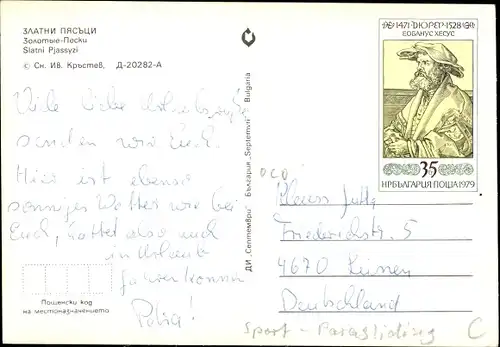 ЗЛАТНИ ПЯСЪЦИ
Золотые Пески
Slatni Pjassyzi
© Сн. Ив. Кръстев, Д-20282-А
Viele liebe
senden wir Euch.
Hier ist ebenso
sonniges Wetter wie bei
Euch, hättet also auch
in Urlaub
fahren können
Пощенски код
на местоназначението
ДИ „Септември" България "Septemvri" Bulgaria
1471 ДЮРЕР 1528
ЕОБАНУС ХЕСУС
35
НР БЪЛГАРИЯ ПОЩА 1979
Jutta
Friederichstr. 5
4670 Lünen
Deutschland
Sport - Paragliding C